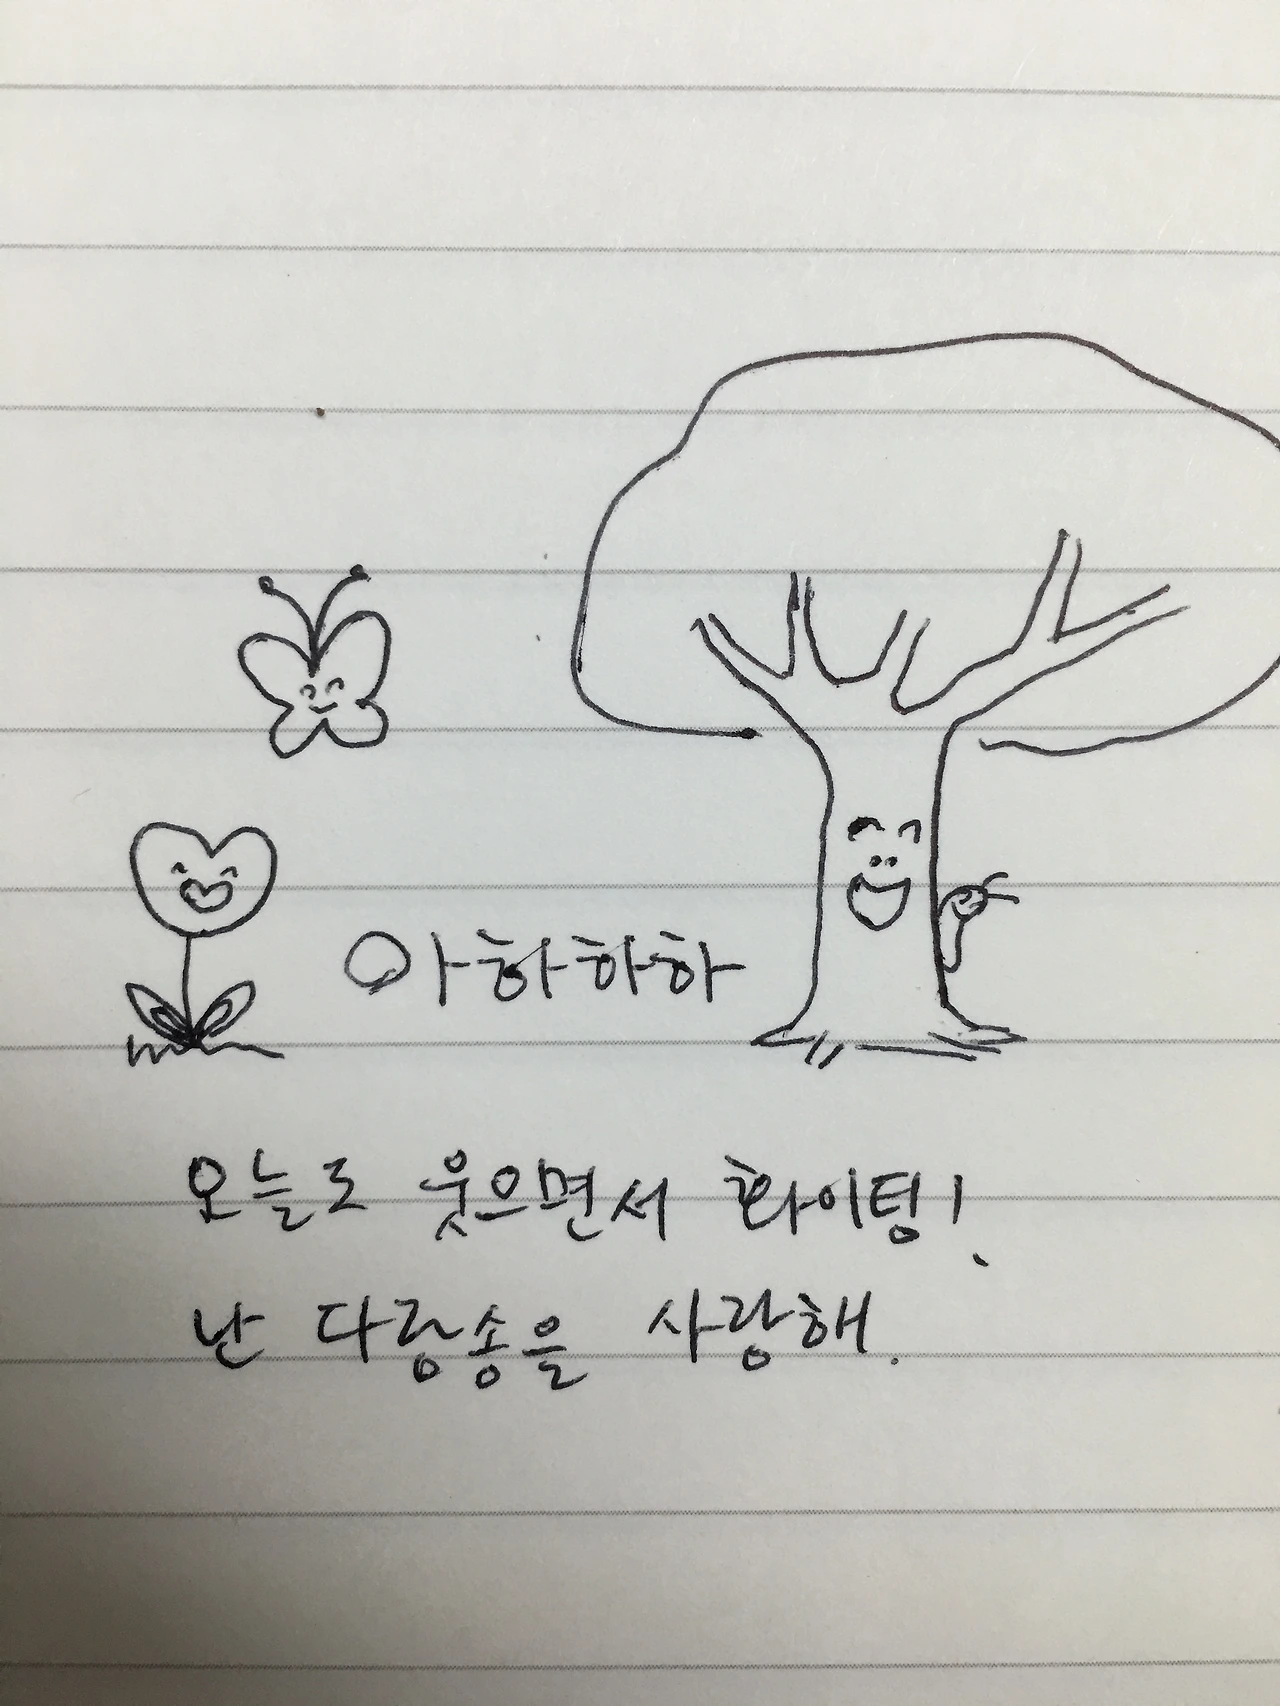 아하하하
오늘도 웃으면서 화이팅!
난 다람송을 사랑해.